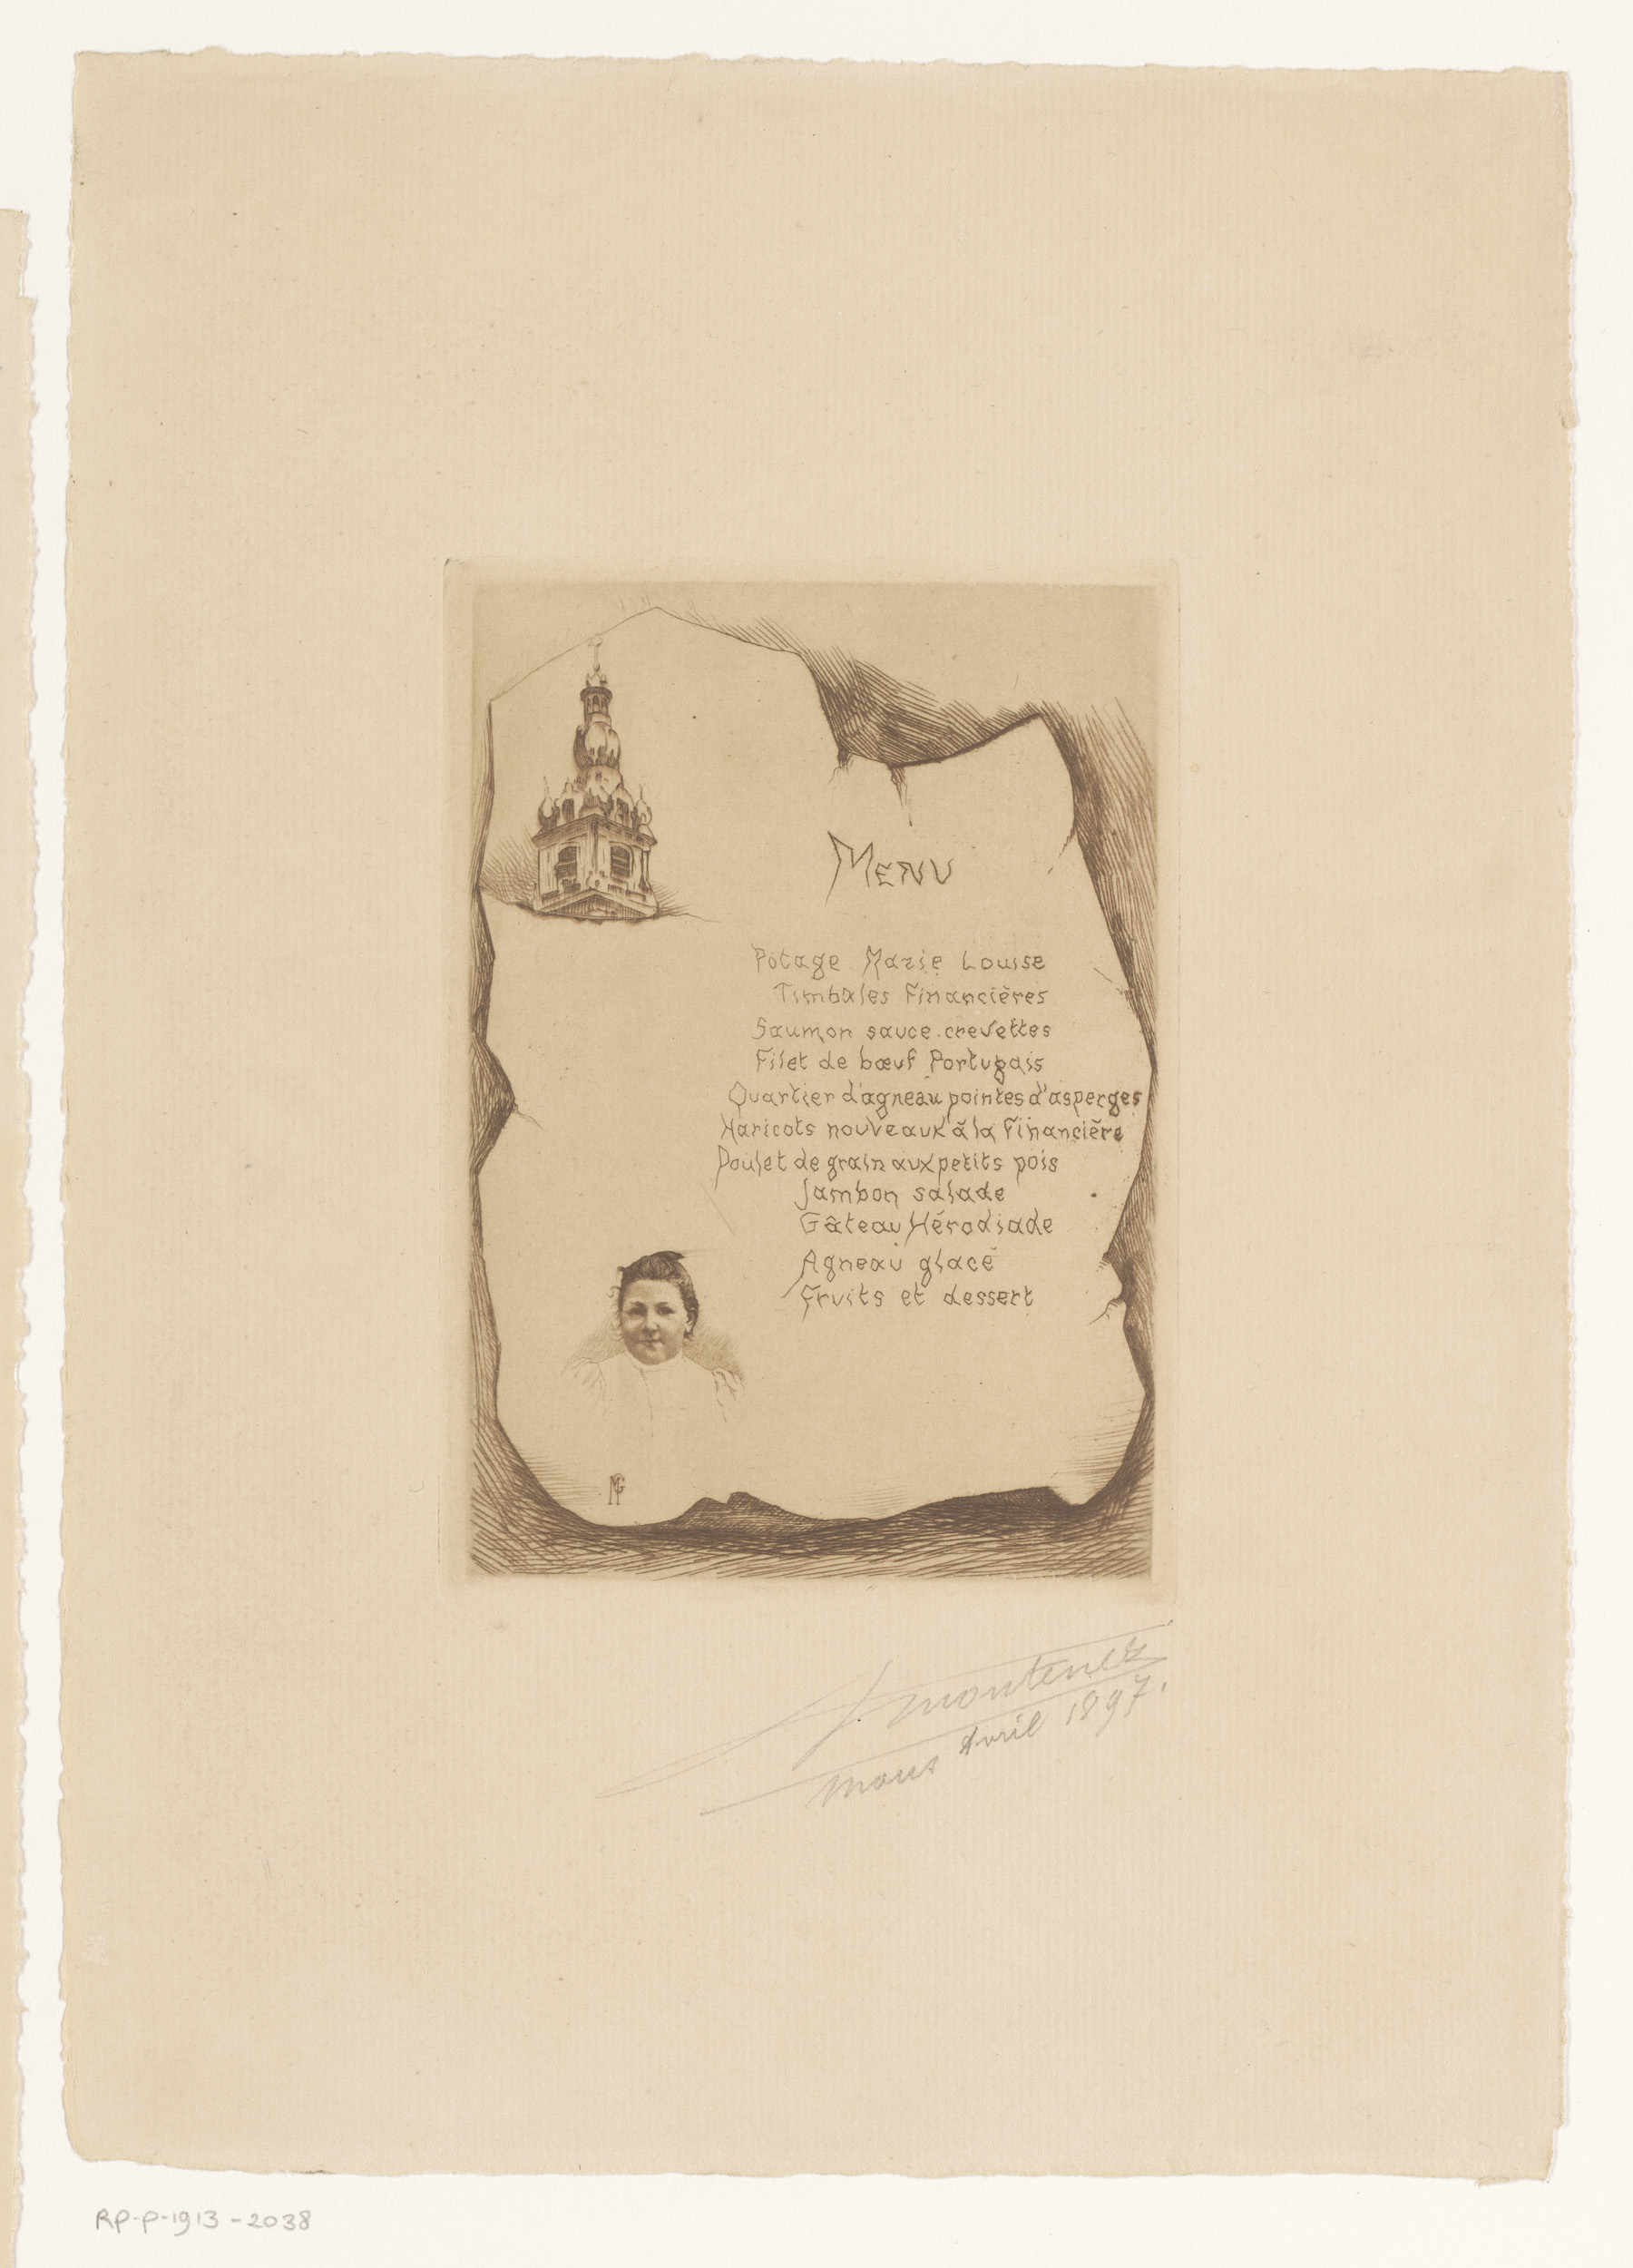 MENU
Potage Marie Louise
Timbales Financières
Saumon sauce crevettes
Filet de bœuf Portugais
Quartier d'agneau pointes d'asperges
Haricots nouveaux à la Financière
Poulet de grain aux petits pois
Jambon salade
Gâteau Hérodiade
Agneau glacé
Fruits et dessert
MG
Montenez
Mons Avril 1897.
RP-P-1913-2038